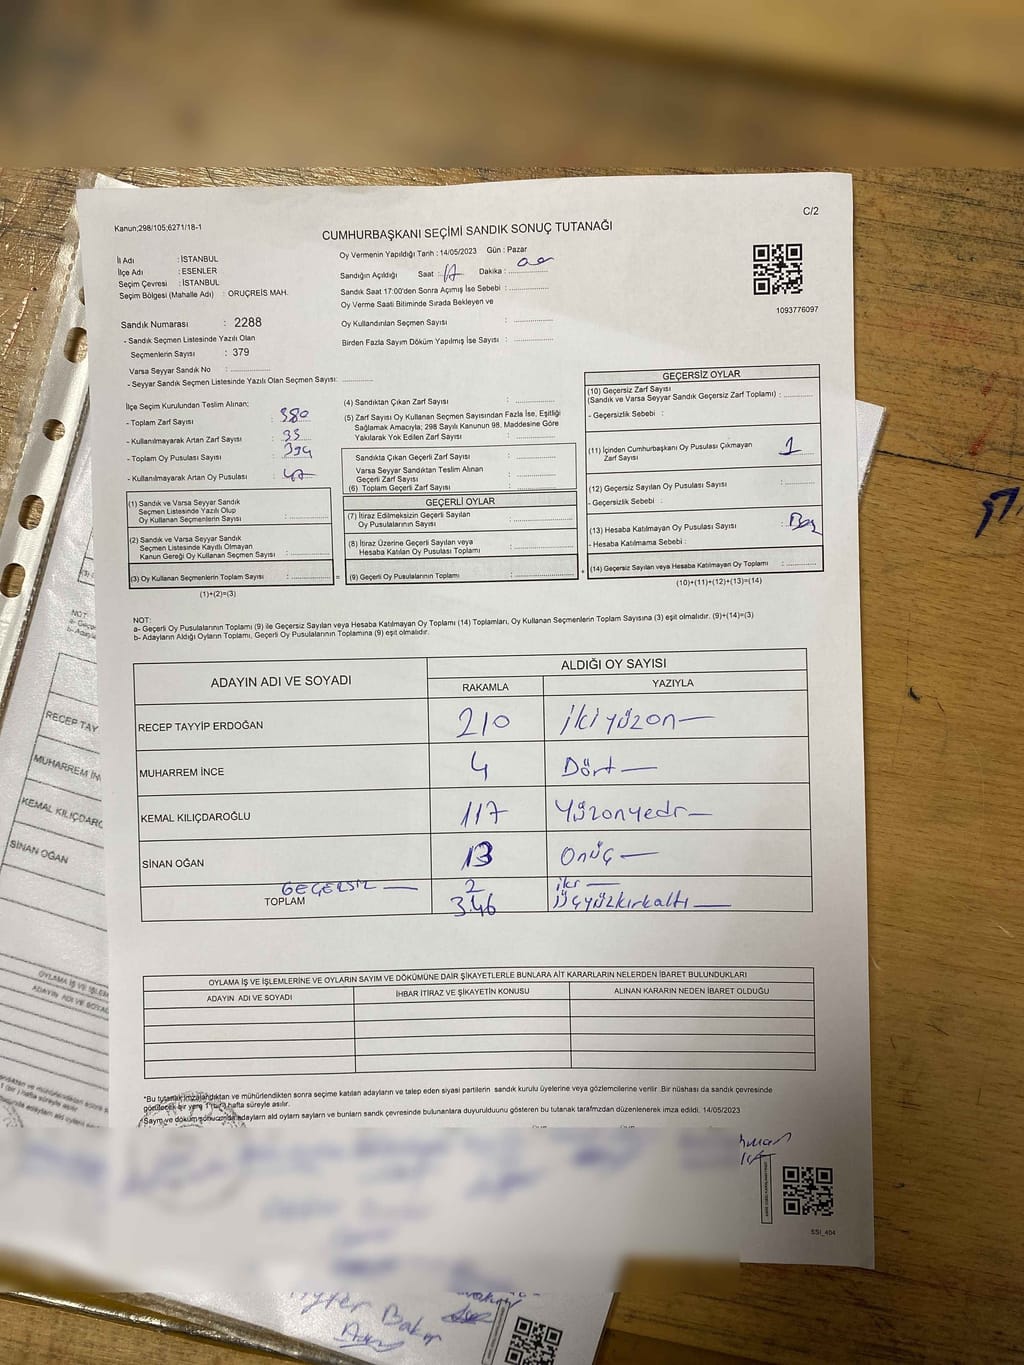 C/2
Kanun;298/105;6271/18-1
CUMHURBAŞKANI SEÇİMİ SANDIK SONUÇ TUTANAĞI
İl Adı : İSTANBUL
İlçe Adı : ESENLER
Seçim Çevresi : İSTANBUL
Seçim Bölgesi (Mahalle Adı) : ORUÇREİS MAH.
Oy Vermenin Yapıldığı Tarih : 14/05/2023 Gün : Pazar
Sandığın Açıldığı Saat : 17 Dakika : 00
Sandık Saat 17:00'den Sonra Açmış İse Sebebi :
Oy Verme Saati Bitiminde Sırada Bekleyen ve
Oy Kullandırılan Seçmen Sayısı :
Birden Fazla Sayım Döküm Yapılmış İse Sayısı :
1093776097
Sandık Numarası : 2288
- Sandık Seçmen Listesinde Yazılı Olan
Seçmenlerin Sayısı : 379
Varsa Seyyar Sandık No :
- Seyyar Sandık Seçmen Listesinde Yazılı Olan Seçmen Sayısı:
İlçe Seçim Kurulundan Teslim Alınan;
- Toplam Zarf Sayısı : 380
- Kullanılmayarak Artan Zarf Sayısı : 33
- Toplam Oy Pusulası Sayısı : 394
- Kullanılmayarak Artan Oy Pusulası : 47
(1) Sandık ve Varsa Seyyar Sandık
Seçmen Listesinde Yazılı Olup
Oy Kullanan Seçmenlerin Sayısı :
(2) Sandık ve Varsa Seyyar Sandık
Seçmen Listesinde Kayıtlı Olmayan
Kanun Gereği Oy Kullanan Seçmen Sayısı :
(3) Oy Kullanan Seçmenlerin Toplam Sayısı :
(1)+(2)=(3)
(4) Sandıktan Çıkan Zarf Sayısı :
(5) Zarf Sayısı Oy Kullanan Seçmen Sayısından Fazla İse, Eşitliği
Sağlamak Amacıyla; 298 Sayılı Kanunun 98. Maddesine Göre
Yakılarak Yok Edilen Zarf Sayısı :
Sandıkta Çıkan Geçerli Zarf Sayısı :
Varsa Seyyar Sandıktan Teslim Alınan
Geçerli Zarf Sayısı :
(6) Toplam Geçerli Zarf Sayısı :
GEÇERLİ OYLAR
(7) İtiraz Edilmeksizin Geçerli Sayılan
Oy Pusulalarının Sayısı :
(8) İtiraz Üzerine Geçerli Sayılan veya
Hesaba Katılan Oy Pusulası Toplamı :
= (9) Geçerli Oy Pusulalarının Toplamı :
GEÇERSİZ OYLAR
(10) Geçersiz Zarf Sayısı
(Sandık ve Varsa Seyyar Sandık Geçersiz Zarf Toplamı) :
- Geçersizlik Sebebi :
(11) İçinden Cumhurbaşkanı Oy Pusulası Çıkmayan
Zarf Sayısı : 1
(12) Geçersiz Sayılan Oy Pusulası Sayısı :
- Geçersizlik Sebebi :
(13) Hesaba Katılmayan Oy Pusulası Sayısı :
- Hesaba Katılmama Sebebi :
+ (14) Geçersiz Sayılan veya Hesaba Katılmayan Oy Toplamı :
(10)+(11)+(12)+(13)=(14)
NOT:
a- Geçerli Oy Pusulalarının Toplamı (9) ile Geçersiz Sayılan veya Hesaba Katılmayan Oy Toplamı (14) Toplamları, Oy Kullanan Seçmenlerin Toplam Sayısına (3) eşit olmalıdır. (9)+(14)=(3)
b- Adayların Aldığı Oyların Toplamı, Geçerli Oy Pusulalarının Toplamına (9) eşit olmalıdır.
ADAYIN ADI VE SOYADI
ALDIĞI OY SAYISI
RAKAMLA YAZIYLA
RECEP TAYYİP ERDOĞAN 210 ikiyüzon
MUHARREM İNCE 4 Dört
KEMAL KILIÇDAROĞLU 117 Yüzonyedi
SİNAN OĞAN 13 Onüç
GEÇERSİZ 2 iki
TOPLAM 346 üçyüzkırkaltı
OYLAMA İŞ VE İŞLEMLERİNE VE OYLARIN SAYIM VE DÖKÜMÜNE DAİR ŞİKAYETLERLE BUNLARA AİT KARARLARIN NELERDEN İBARET BULUNDUKLARI
ADAYIN ADI VE SOYADI İHBAR İTİRAZ VE ŞİKAYETİN KONUSU ALINAN KARARIN NEDEN İBARET OLDUĞU
*Bu tutanak imzalandıktan ve mühürlendikten sonra seçime katılan adayların ve talep eden siyasi partilerin sandık kurulu üyelerine veya gözlemcilerine verilir. Bir nüshası da sandık çevresinde
görülecek bir yere 1 (bir) hafta süreyle asılır.
*Sayım ve döküm sonucunda adayların aldığı oyların sayıları ve bunların sandık çevresinde bulunanlara duyurulduğunu gösteren bu tutanak tarafımızdan düzenlenerek imza edildi. 14/05/2023
SSI_404
NOT:
RECEP TAY
MUHARREM İN
KEMAL KILIÇDARO
SİNAN OĞAN
Bakır